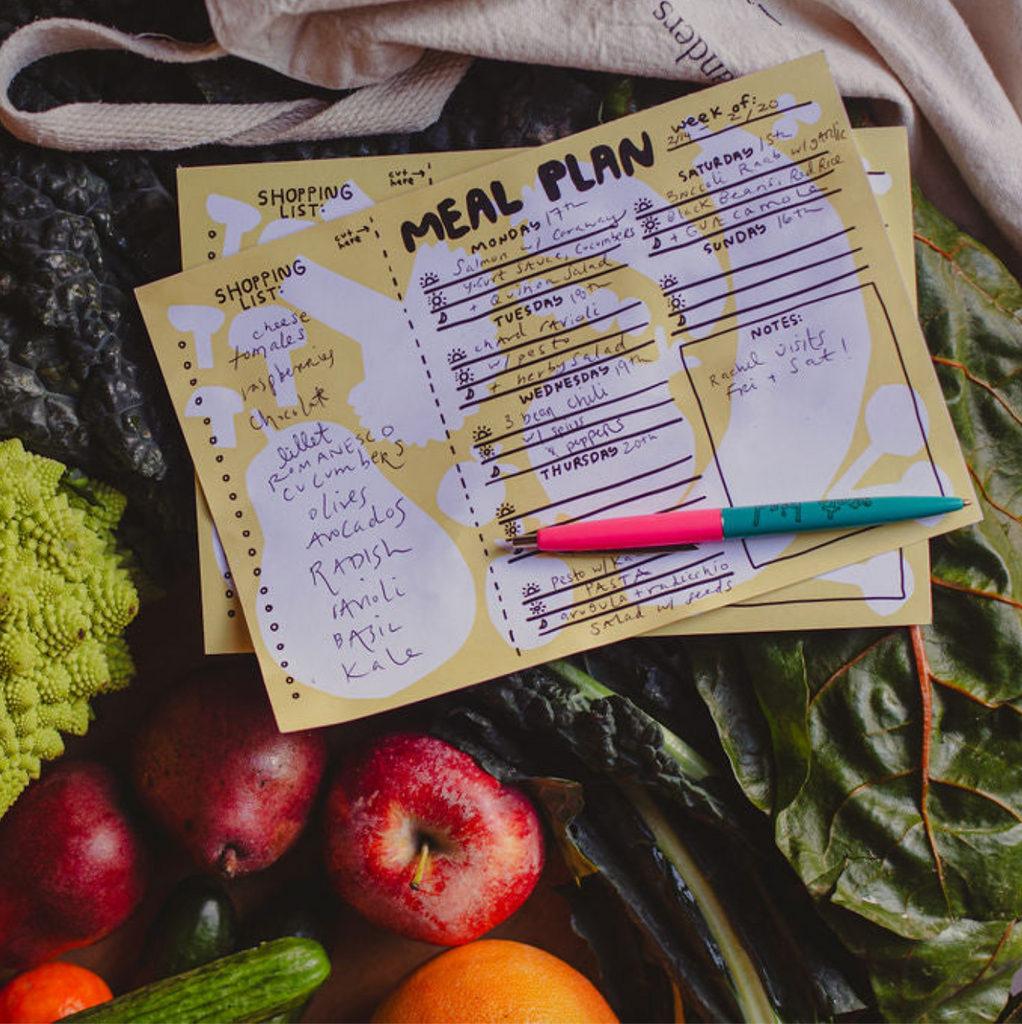 anders
SHOPPING
LIST:
cut
here
SHOPPING
LIST:
cut
here
cheese
tomales
raspberries
chocolate
fillet
ROMANESCO
CUCUMBERS
olives
AVOCADOS
RADISH
rAVioli
BASIL
Kale
MEAL PLAN
MONDAY 17th
Salmon w/ Caraway
yogurt sauce, Cucumbers
+ Quinoa Salad
TUESDAY 18th
chard rAvioli
w/ pesto
+ herby salad
WEDNESDAY 19th
3 bean chili
w/
& peppers
THURSDAY 20th
pesto w/ Ka
PASTA
arugula + radicchio
SALAD w/ seeds
week of:
2/14 - 2/20
SATURDAY 15th
Broccoli Raab w/ garlic
Black Beans, Red Rice
+ GUACamole
SUNDAY 16th
NOTES:
Rachel visits
Frei + Sat!